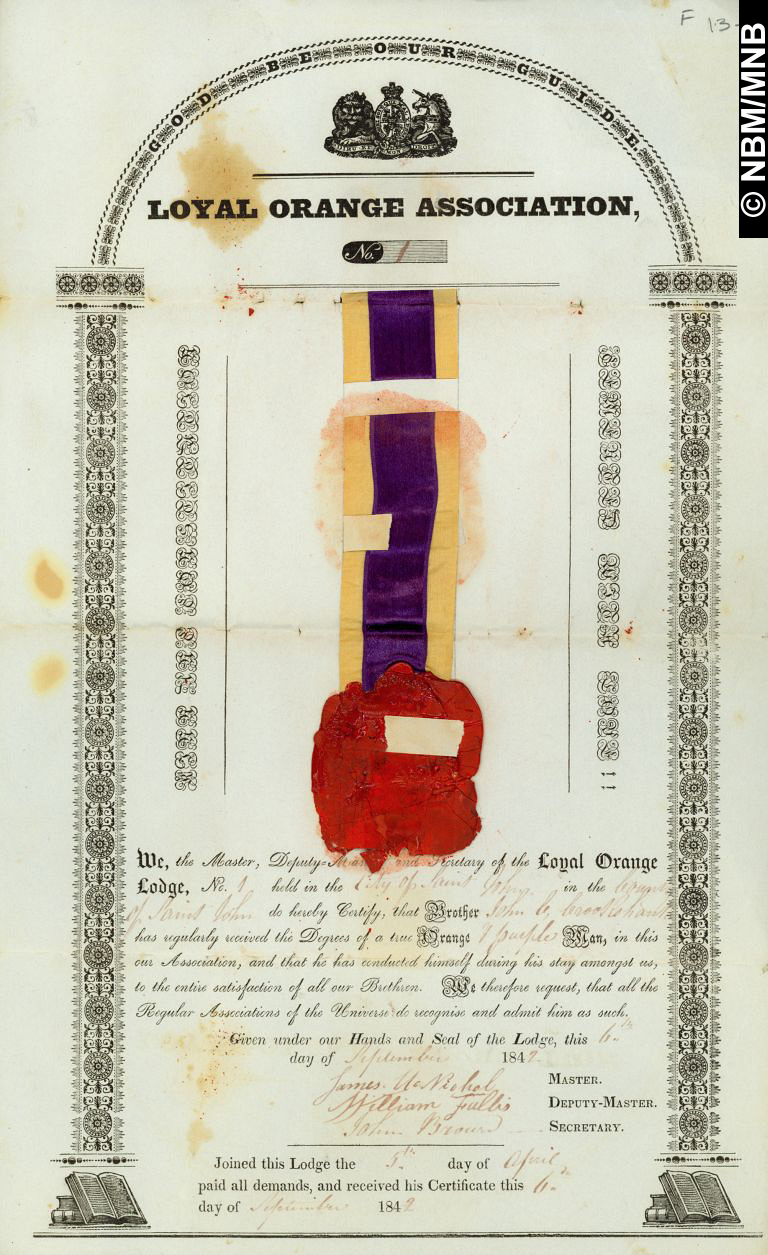 F 13
© NBM/MNB
GOD BE OUR GUIDE
DIEU ET MON DROIT
LOYAL ORANGE ASSOCIATION,
No. 1
We, the Master, Deputy-Master and Secretary of the Loyal Orange
Lodge, No. 1 held in the City of Saint John in the County
of Saint John do hereby Certify, that Brother John C,
has regularly received the Degrees of a true Orange & purple Man, in this
our Association, and that he has conducted himself during his stay amongst us,
to the entire satisfaction of all our Brethren. We therefore request, that all the
Regular Associations of the Universe do recognise and admit him as such.
Given under our Hands and Seal of the Lodge, this 6th
day of September 1842.
James McNichol MASTER.
William DEPUTY-MASTER.
John Brown SECRETARY.
Joined this Lodge the 5th day of April
paid all demands, and received his Certificate this 6th
day of September 1842